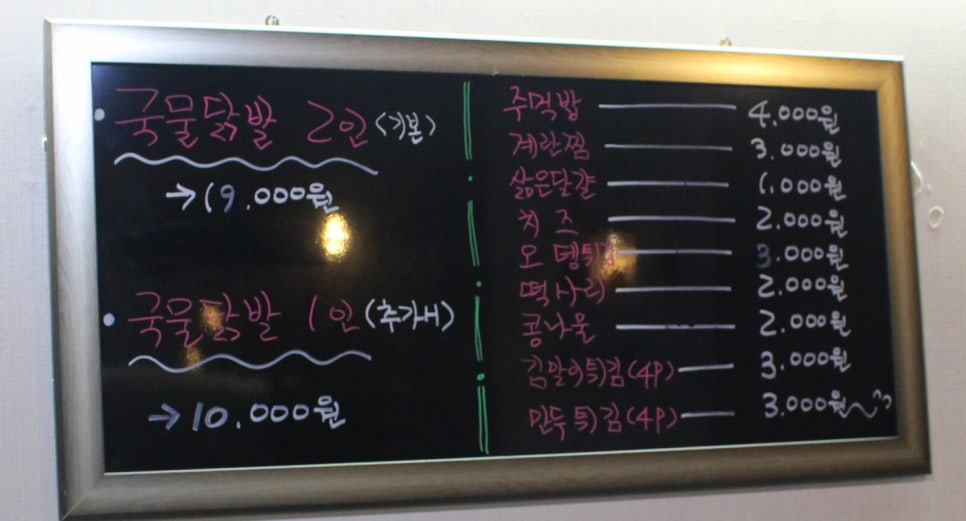 국물닭발 2인 (기본)
→ 19.000원
국물닭발 1인 (추가시)
→ 10.000원
주먹밥 4.000원
계란찜 3.000원
삶은달걀 1.000원
치즈 2.000원
오뎅튀김 3.000원
떡사리 2.000원
콩나물 2.000원
김말이튀김(4P) 3.000원
만두튀김(4P) 3.000원~^^